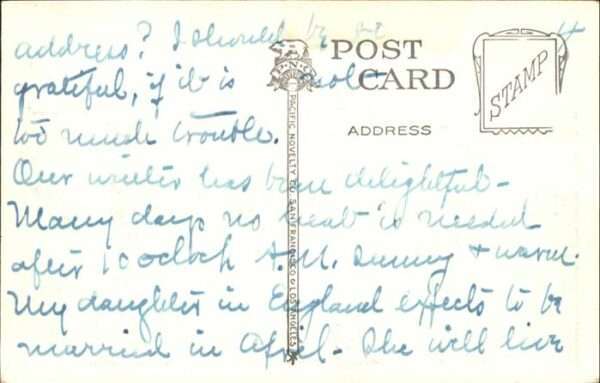 address? I should be 4
POST CARD
STAMP
ADDRESS
PNC
PACIFIC NOVELTY CO. SAN FRANCISCO & LOS ANGELES
grateful, if it is not
too much trouble.
Our winter has been delightful -
Many days no heat is needed
after 10 oclock A.M. Sunny + warm.
My daughter in England expects to be
married in April - She will live